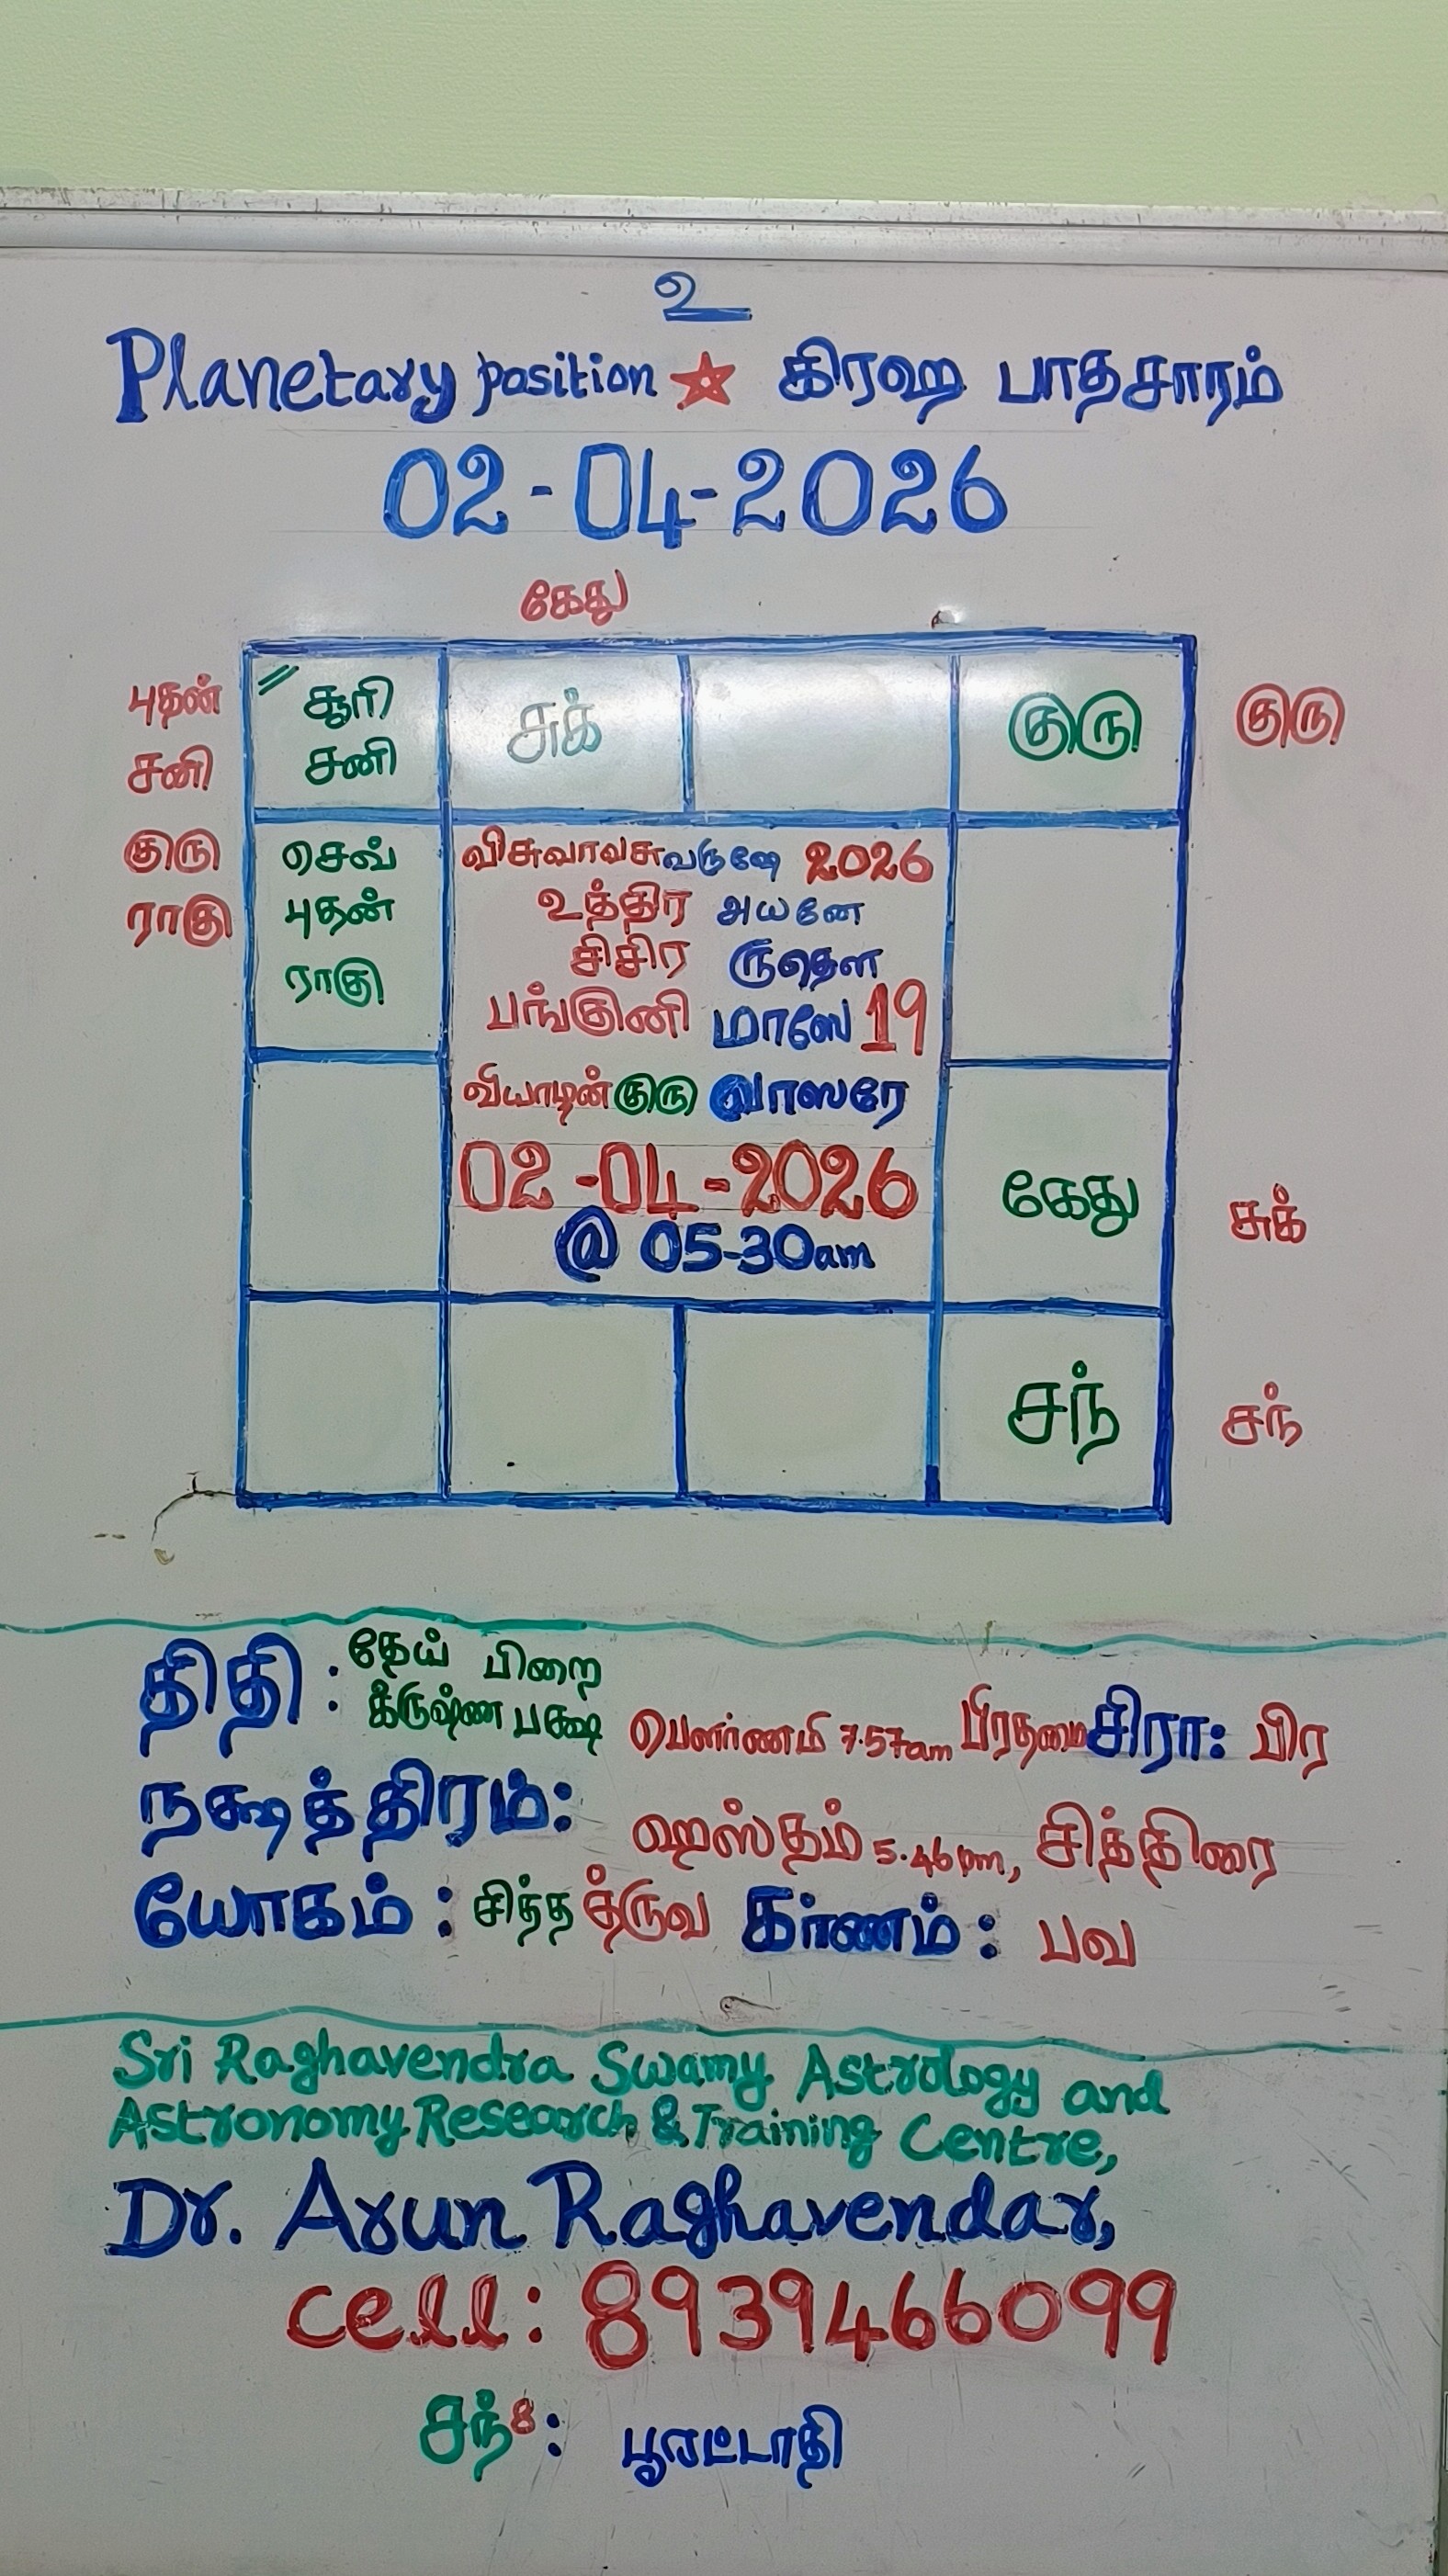 உ
Planetary position ☆ கிரஹ பாதசாரம்
02-04-2026
கேது
புதன்
சனி
குரு
ராகு
சூரி
சனி
சுக்
குரு
குரு
செவ்
புதன்
ராகு
விசுவாவசுவருஷே 2026
உத்திர அயனே
சிசிர ருதௌ
பங்குனி மாஸே 19
வியாழன் குரு வாஸரே
02-04-2026
@ 05-30am
கேது
சுக்
சந்
சந்
திதி : தேய் பிறை
க்ருஷ்ண பக்ஷ பௌர்ணமி 7.57am பிரதமை சிரா: பிர
நக்ஷத்திரம்: ஹஸ்தம் 5.46pm, சித்திரை
யோகம் : சித்த த்ருவ கர்ணம் : பவ
Sri Raghavendra Swamy Astrology and
Astronomy Research & Training Centre,
Dr. Arun Raghavendar,
cell: 8939466099
சந் 8: பூரட்டாதி